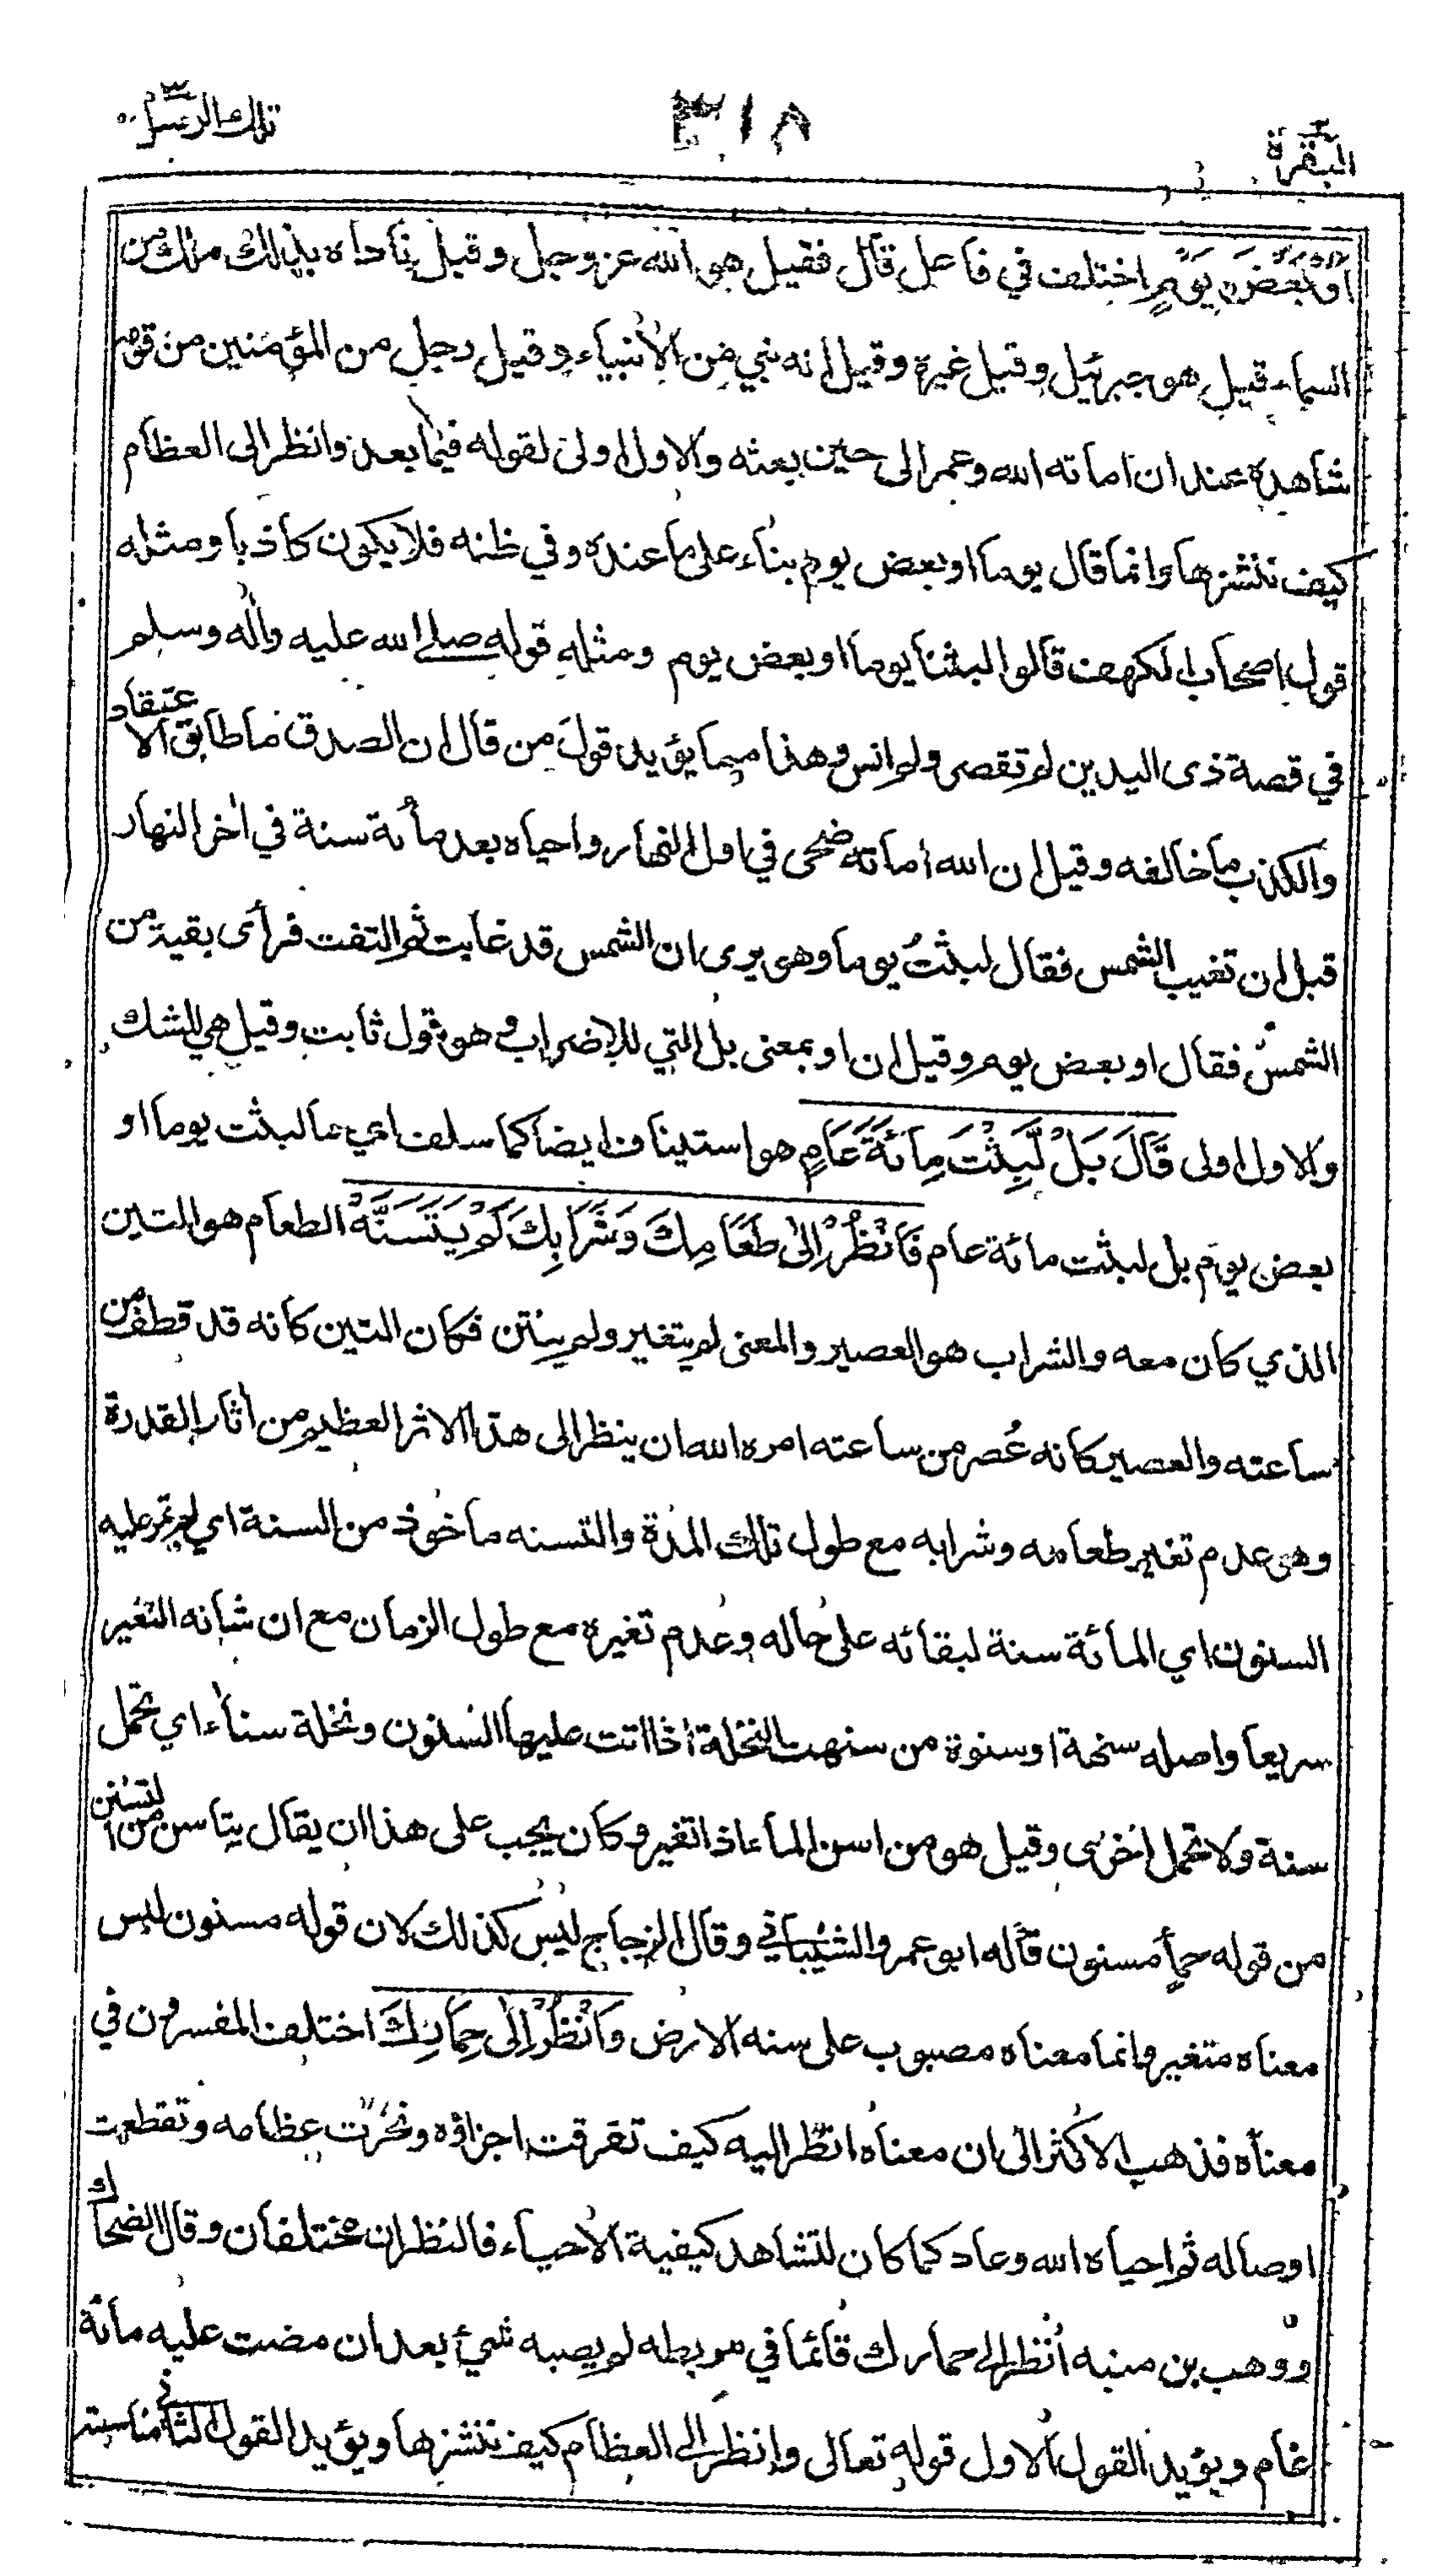 البقرة ٣١٨ تلك الرسل
أَوْ بَعْضَ يَوْمٍ اختلف في فاعل قال فقيل هو الله عز وجل وقيل ناداه بذلك ملك من
السماء قيل هو جبرئيل وقيل غيره وقيل انه نبي من الأنبياء وقيل رجل من المؤمنين من قومه
شاهده عند ان اماته الله وعمر الى حين بعثه والاول اولى لقوله فيما بعد وانظر الى العظام
كيف ننشزها وانما قال يوما او بعض يوم بناء على ما عنده وفي ظنه فلا يكون كاذبا ومثله
قول اصحاب الكهف قالوا لبثنا يوما او بعض يوم ومثله قوله صلى الله عليه وآله وسلم
في قصة ذى اليدين لم تقصر ولم انس وهذا مما يؤيد قول من قال ان الصدق ما طابق الاعتقاد
والكذب ما خالفه وقيل ان الله اماته ضحى في اول النهار واحياه بعد مائة سنة في اخر النهار
قبل ان تغيب الشمس فقال لبثت يوما وهو يرى ان الشمس قد غابت ثم التفت فرأى بقية من
الشمس فقال او بعض يوم وقيل ان او بمعنى بل التي للاضراب وهو قول ثابت وقيل هي للشك
والاول اولى قَالَ بَلْ لَّبِثْتَ مِائَةَ عَامٍ هو استيناف ايضا كما سلف اي ما لبثت يوما او
بعض يوم بل لبثت مائة عام فَانْظُرْ إِلَىٰ طَعَامِكَ وَشَرَابِكَ لَمْ يَتَسَنَّهْ الطعام هو التين
الذي كان معه والشراب هو العصير والمعنى لم يتغير ولم ينتن فكان التين كانه قد قطف من
ساعته والعصير كانه عُصر من ساعته امره الله ان ينظر الى هذا الاثر العظيم من آثار القدرة
وهو عدم تغير طعامه وشرابه مع طول تلك المدة والتسنه ماخوذ من السنة اي لم تمر عليه
السنون اي المائة سنة لبقائه على حاله وعدم تغيره مع طول الزمان مع ان شانه التغير
سريعا واصله سنهة او سنوة من سنهت النخلة اذا اتت عليها السنون ونخلة سناء اي تحمل
سنة ولا تحمل اخرى وقيل هو من اسن الماء اذا تغير وكان يجب على هذا ان يقال يتاسن من التسنن
من قوله حمأ مسنون قاله ابو عمرو الشيباني وقال الزجاج ليس كذلك لان قوله مسنون ليس
معناه متغير وانما معناه مصبوب على سنه الارض وَانْظُرْ إِلَىٰ حِمَارِكَ اختلف المفسرون في
معناه فذهب الاكثر الى ان معناه انظر اليه كيف تفرقت اجزاؤه ونخرت عظامه وتقطعت
اوصاله ثم احياه الله وعاد كما كان لتشاهد كيفية الأحياء فالنظران مختلفان وقال الضحاك
ووهب بن منبه اُنظر الى حمارك قائما في مربطه لم يصبه شيء بعد ان مضت عليه مائة
عام ويؤيد القول الاول قوله تعالى وانظر الى العظام كيف ننشزها ويؤيد القول الثاني